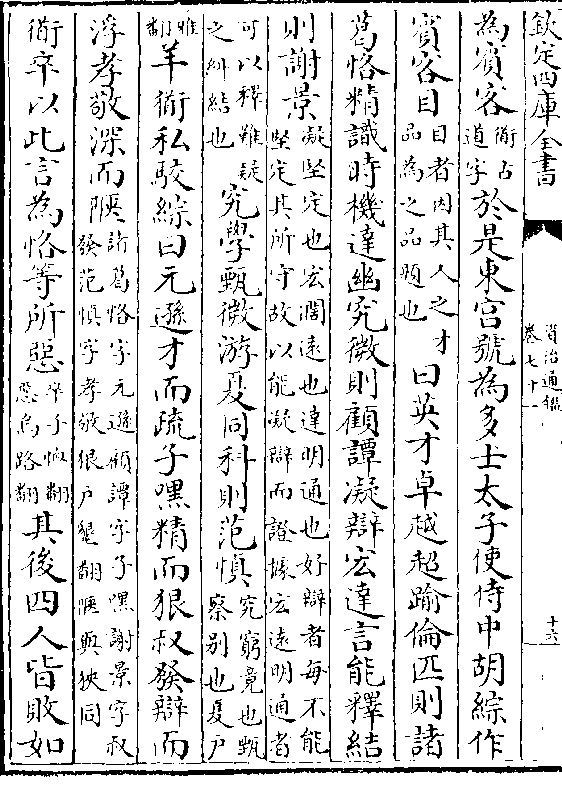 欽定四庫全書
資治通鑑
卷七十一
十六
為賓客衟古道字於是東宮號為多士太子使侍中胡綜作
賓客目目者因其人之才品為之品題也曰英才卓越超踰倫匹則諸
葛恪精識時機達幽究微則顧譚凝辯宏達言能釋結
則謝景凝堅定也宏濶遠也達明通也好辯者每不能堅定其所守故以能凝辯而證據宏遠明通者
可以釋難疑之糾結也究學甄微游夏同科則范慎究窮竟也甄察别也夏户
雅翻羊衟私駮綜曰元遜才而疏子嘿精而狠叔發辯而
浮孝敬深而陿諸葛恪字元遜顧譚字子嘿謝景字叔發范慎字孝敬狠户墾翻陿與狹同
衟卒以此言為恪等所惡卒子恤翻惡烏路翻其後四人皆敗如